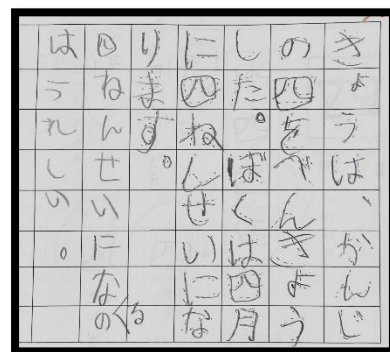 きょうは、かんじ
の四をべんきょう
した。ばくは四月
に四ねんせいにな
ります。
四ねんせいになるの
はうれしい。